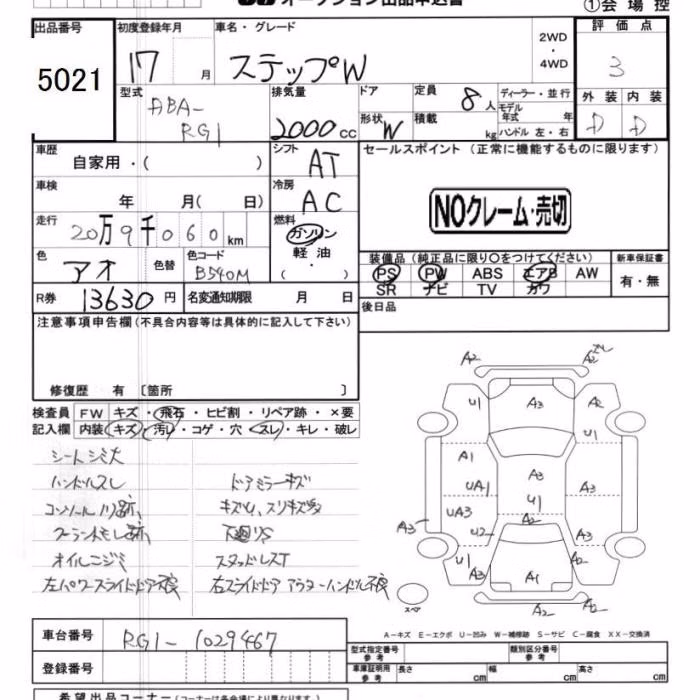 オークション出品申込書
①会場控
出品番号
5021
初度登録年月
17 月
車名・グレード
ステップW
2WD・4WD
評価点
3
型式
ABA-RG1
排気量
2000cc
ドア
形状
W
定員
8人
積載
kg
ディーラー・並行
モデル年式 年
ハンドル 左・右
外装 内装
D D
車歴
自家用・( )
シフト
AT
セールスポイント (正常に機能するものに限ります)
NOクレーム・売切
車検
年 月( 日)
冷房
AC
走行
20万9千060km
燃料
ガソリン
軽油
( ・ )
色
アオ
色替
色コード
B540M
装備品 (純正品に限り○をつけてください)
新車保証書
PS PW ABS エアB AW
SR ナビ TV カワ
有・無
R券
13630円
名変通知期限 月 日
後日品
注意事項申告欄 (不具合内容等は具体的に記入して下さい)
修復歴 有 〔箇所 〕
検査員記入欄
FW キズ・飛石・ヒビ割・リペア跡・×要
内装 キズ・汚レ・コゲ・穴・スレ・キレ・破レ
シートシミ大
ハンドルスレ
コンソールノリ跡、
クーラントモレ跡、
オイルニジミ
左パワースライドドア不良
ドアミラーキズ
キズ凹、スリキズ多
下廻りS
スタッドレスT
右スライドドア アウターハンドル不良
A2 A2
U1 A3 A2
U1
A1
UA1 A3 A3
UA3 U1
A2
A3 U2 A3
U1 A3 A1 A2
A2 A2
スペア
A-キズ E-エクボ U-凹み W-補修跡 S-サビ C-腐食 XX-交換済
車台番号
RG1-1029467
登録番号
型式指定番号 参考
類別区分番号 参考
車庫証明用 参考
長さ cm 幅 cm 高さ cm
希望出品コーナー (コーナーは各会場により異なります。)